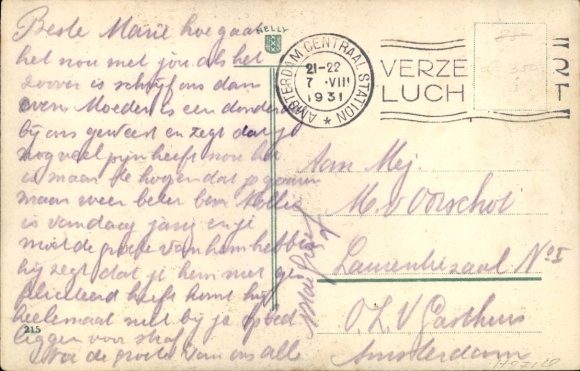 Beste Marie hoe gaat
het nou met jou als het
zoover is schrijf ons dan
even Moeder is een donderd
bij ons geweest en zegt dat je
nog veel pijn heeft nou het
is maar te hopen dat je gauw
maar weer beter ben Nellie
is vandaag jarig en je
moet de groete van hem hebbe
hij zegt dat je hem niet ge
feliciteerd heeft komt hij
heelemaal niet bij je op bed
liggen voor straf
de groete van ons alle
215
NELLY
AMSTERDAM CENTRAAL STATION
21-22
7 VIII
1931
VERZE
LUCH
Aan Mej.
M. v Oorschot
Zaal No I
O. L. V Gasthuis
Amsterdam